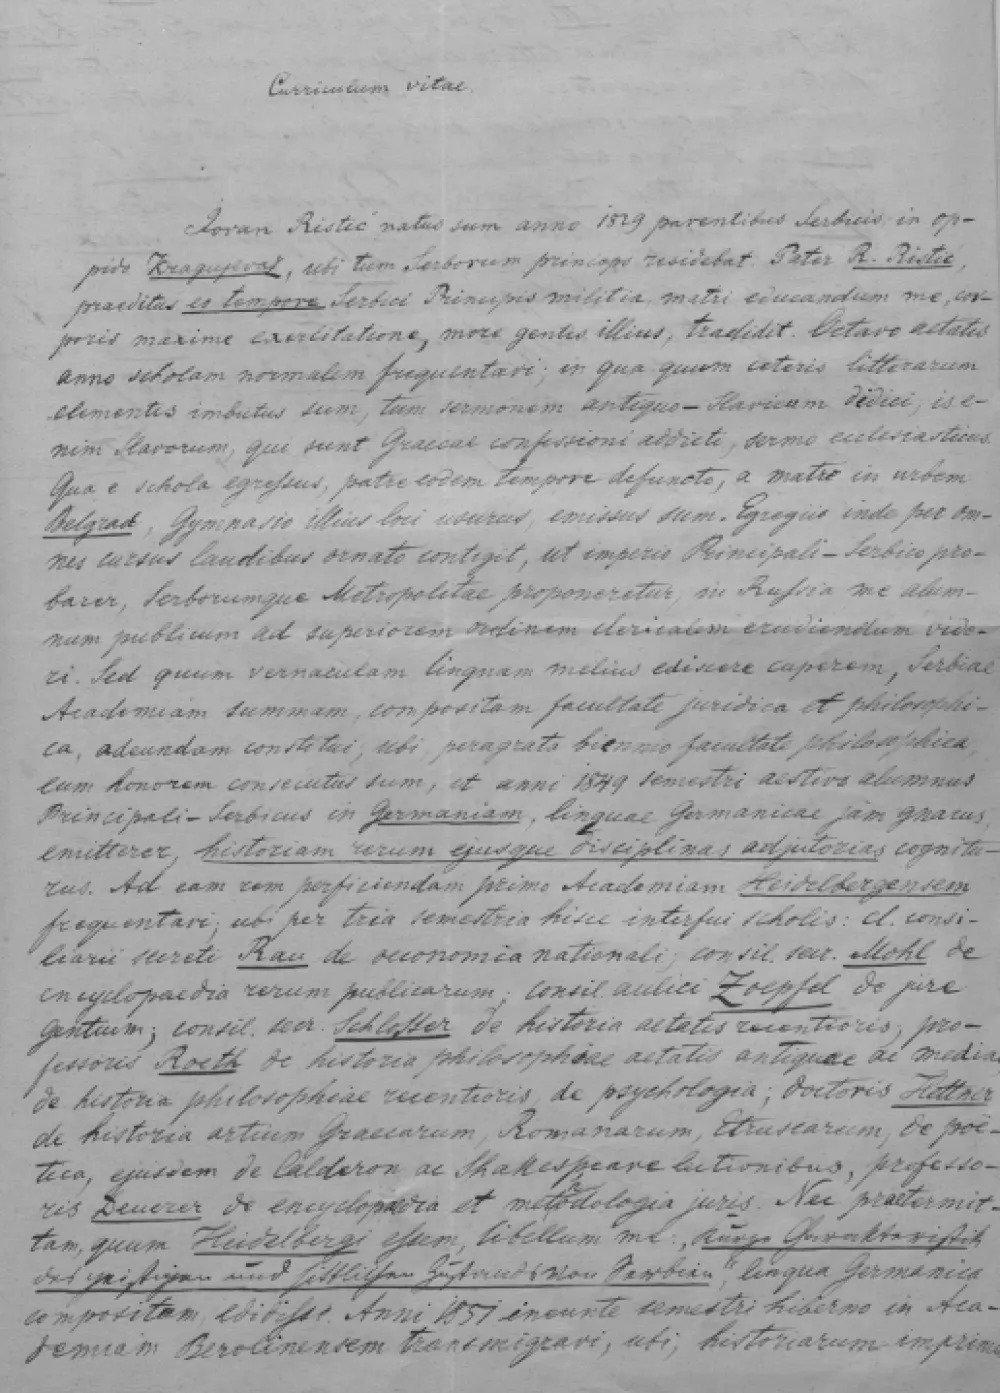 Curriculum vitae.
Jovan Ristić natus sum anno 1829 parentibus Serbicis, in op-
pido Kragujevaz, ubi tum Serborum princeps residebat. Pater R. Ristić,
praeditus eo tempore Serbici Principis militia, matri educandum me, cor-
poris maxime exercitatione, more gentis illius, tradidit. Octavo aetatis
anno scholam normalem frequentavi; in qua quum ceteris litterarum
elementis imbutus sum, tum sermonem antiquo-Slavicum didici, is e-
nim Slavorum, qui sunt Graecae confessioni addicti, sermo eclesiasticus.
Qua e schola egressus, patre eodem tempore defuncto, a matre in urbem
Belgrad, Gymnasio illius loci usurus, emissus sum. Egregiis inde per om-
nes cursus laudibus ornato contigit, ut imperio Principali-Serbico pro-
barer, Serborumque Metropolitae proponeretur, in Russia me alum-
num publicum ad superiorem ordinem clericalem erudiendum vide-
ri. Sed quum vernaculam linguam melius ediscere cuperem, Serbiae
Academiam summam, compositam facultate juridica et philosophi-
ca, adeundam constitui, ubi, peragrata biennio facultate philosophica,
eum honorem consecutus sum, ut anni 1849 semestri aestivo alumnus
Principali-Serbicus in Germaniam, linguae Germanicae jam gnarus,
emitterer, historiam rerum ejusque disciplinas adjutorias cognitu-
rus. Ad eam rem perficiendam primo Academiam Heidelbergensem
frequentavi; ubi per tria semestria hisce interfui scholis: cl. consi-
liarii secreti Rau de oeconomica nationali; consil. secr. Mohl de
encyclopaedia rerum publicarum; consil. aulici Zoepfel de jure
gentium; consil. secr. Schlosser de historia aetatis recentioris; pro-
fessoris Roeth de historia philosophiae aetatis antiquae ac mediae,
de historia philosophiae recentioris, de psychologia; doctoris Hettner
de historia artium Graecarum, Romanarum, Etruscarum, de poë-
tica, ejusdem de Calderon ac Shakespeare lectionibus, professo-
ris Deurer de encyclopaedia et methodologia juris. Nec praetermit-
tam, quum Heidelbergi essem, libellum me: „Kurze Charakteristik
des geistigen und sittlichen Zustandes von Serbien", lingua Germanica
compositum, edidisse. Anni 1851 ineunte semestri hiberno in Aca-
demiam Berolinensem transmigravi, ubi, historiarum imprimis